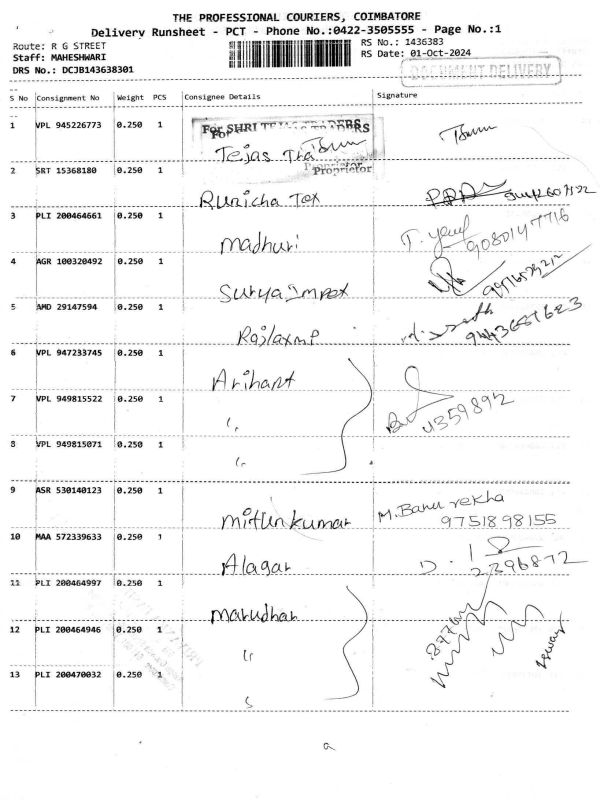 THE PROFESSIONAL COURIERS, COIMBATORE
Delivery Runsheet - PCT - Phone No.:0422-3505555 - Page No.:1
Route: R G STREET
RS No.: 1436383
Staff: MAHESHWARI
RS Date: 01-Oct-2024
DRS No.: DCJB143638301
DOCUMENT DELIVERY
S No Consignment No Weight PCS Consignee Details Signature
1 VPL 945226773 0.250 1
For SHRI TEJAS TRADERS
Tejas Tra
Proprietor
2 SRT 15368180 0.250 1
Runicha Tex
3 PLI 200464661 0.250 1
madhuri 9080147716
4 AGR 100320492 0.250 1
Surya Impex
5 AMD 29147594 0.250 1
Rajlaxmi
6 VPL 947233745 0.250 1
Arihant
7 VPL 949815522 0.250 1
"
4359892
8 VPL 949815071 0.250 1
"
9 ASR 530140123 0.250 1
mithun kumar M. Banu rekha
9751898155
10 MAA 572339633 0.250 1
Alagar
2396872
11 PLI 200464997 0.250 1
marudhar
12 PLI 200464946 0.250 1
"
13 PLI 200470032 0.250 1